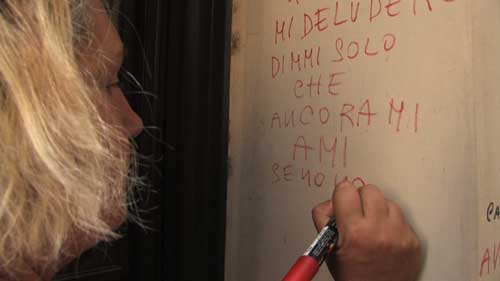 MI DELUDERE
DIMMI SOLO
CHE
ANCORA MI
AMI
SE NO NO
CA
AV